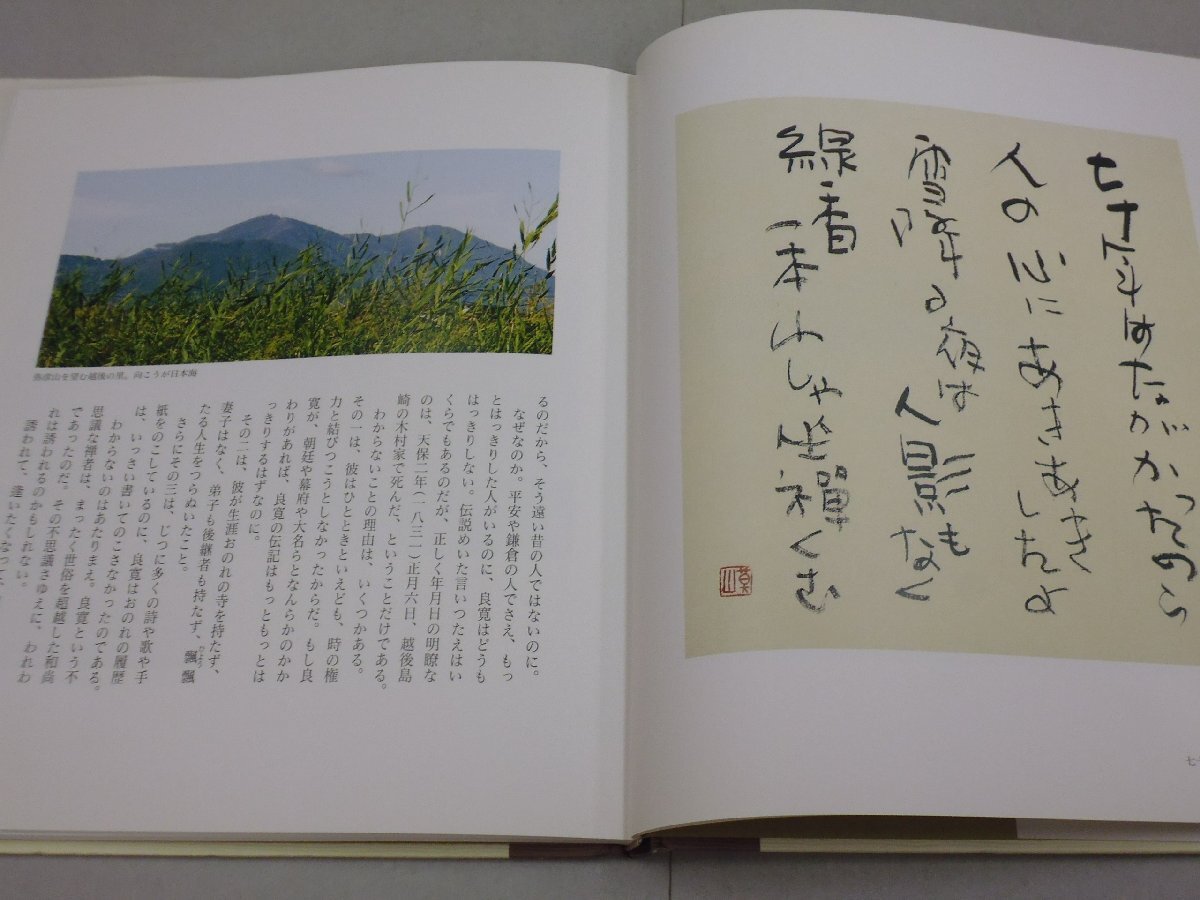 七十年はながかったのう
人の心にあきあきしたよ
雪降る夜は人影もなく
線香一本燃しゃ坐禅くむ
莫山
七十
弥彦山を望む越後の里。向こうが日本海
るのだから、そう遠い昔の人ではないのに。
なぜなのか。平安や鎌倉の人でさえ、もっ
とはっきりした人がいるのに、良寛はどうも
はっきりしない。伝説めいた言いつたえはい
くらでもあるのだが、正しく年月日の明瞭な
のは、天保二年(一八三一)正月六日、越後島
崎の木村家で死んだ、ということだけである。
わからないことの理由は、いくつかある。
その一は、彼はひとときといえども、時の権
力と結びつこうとしなかったからだ。もし良
寛が、朝廷や幕府や大名らとなんらかのかか
わりがあれば、良寛の伝記はもっともっとは
っきりするはずなのに。
その二は、彼が生涯おのれの寺を持たず、
妻子はなく、弟子も後継者も持たず、飄飄
たる人生をつらぬいたこと。
さらにその三は、じつに多くの詩や歌や手
紙をのこしているのに、良寛はおのれの履歴
は、いっさい書いてのこさなかったのである。
わからないのはあたりまえ。良寛という不
思議な禅者は、まったく世俗を超越した和尚
であったのだ。その不思議さゆえに、われわ
れは誘われるのかもしれない。
誘われて、逢いたくなって、